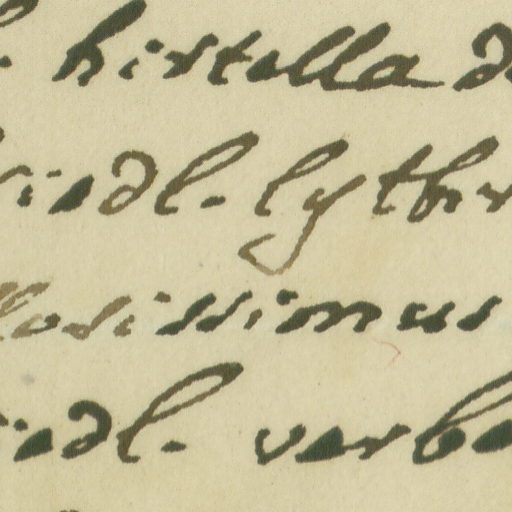 . hirtella d
riedl. lythr
llosissimus
iedl. verba